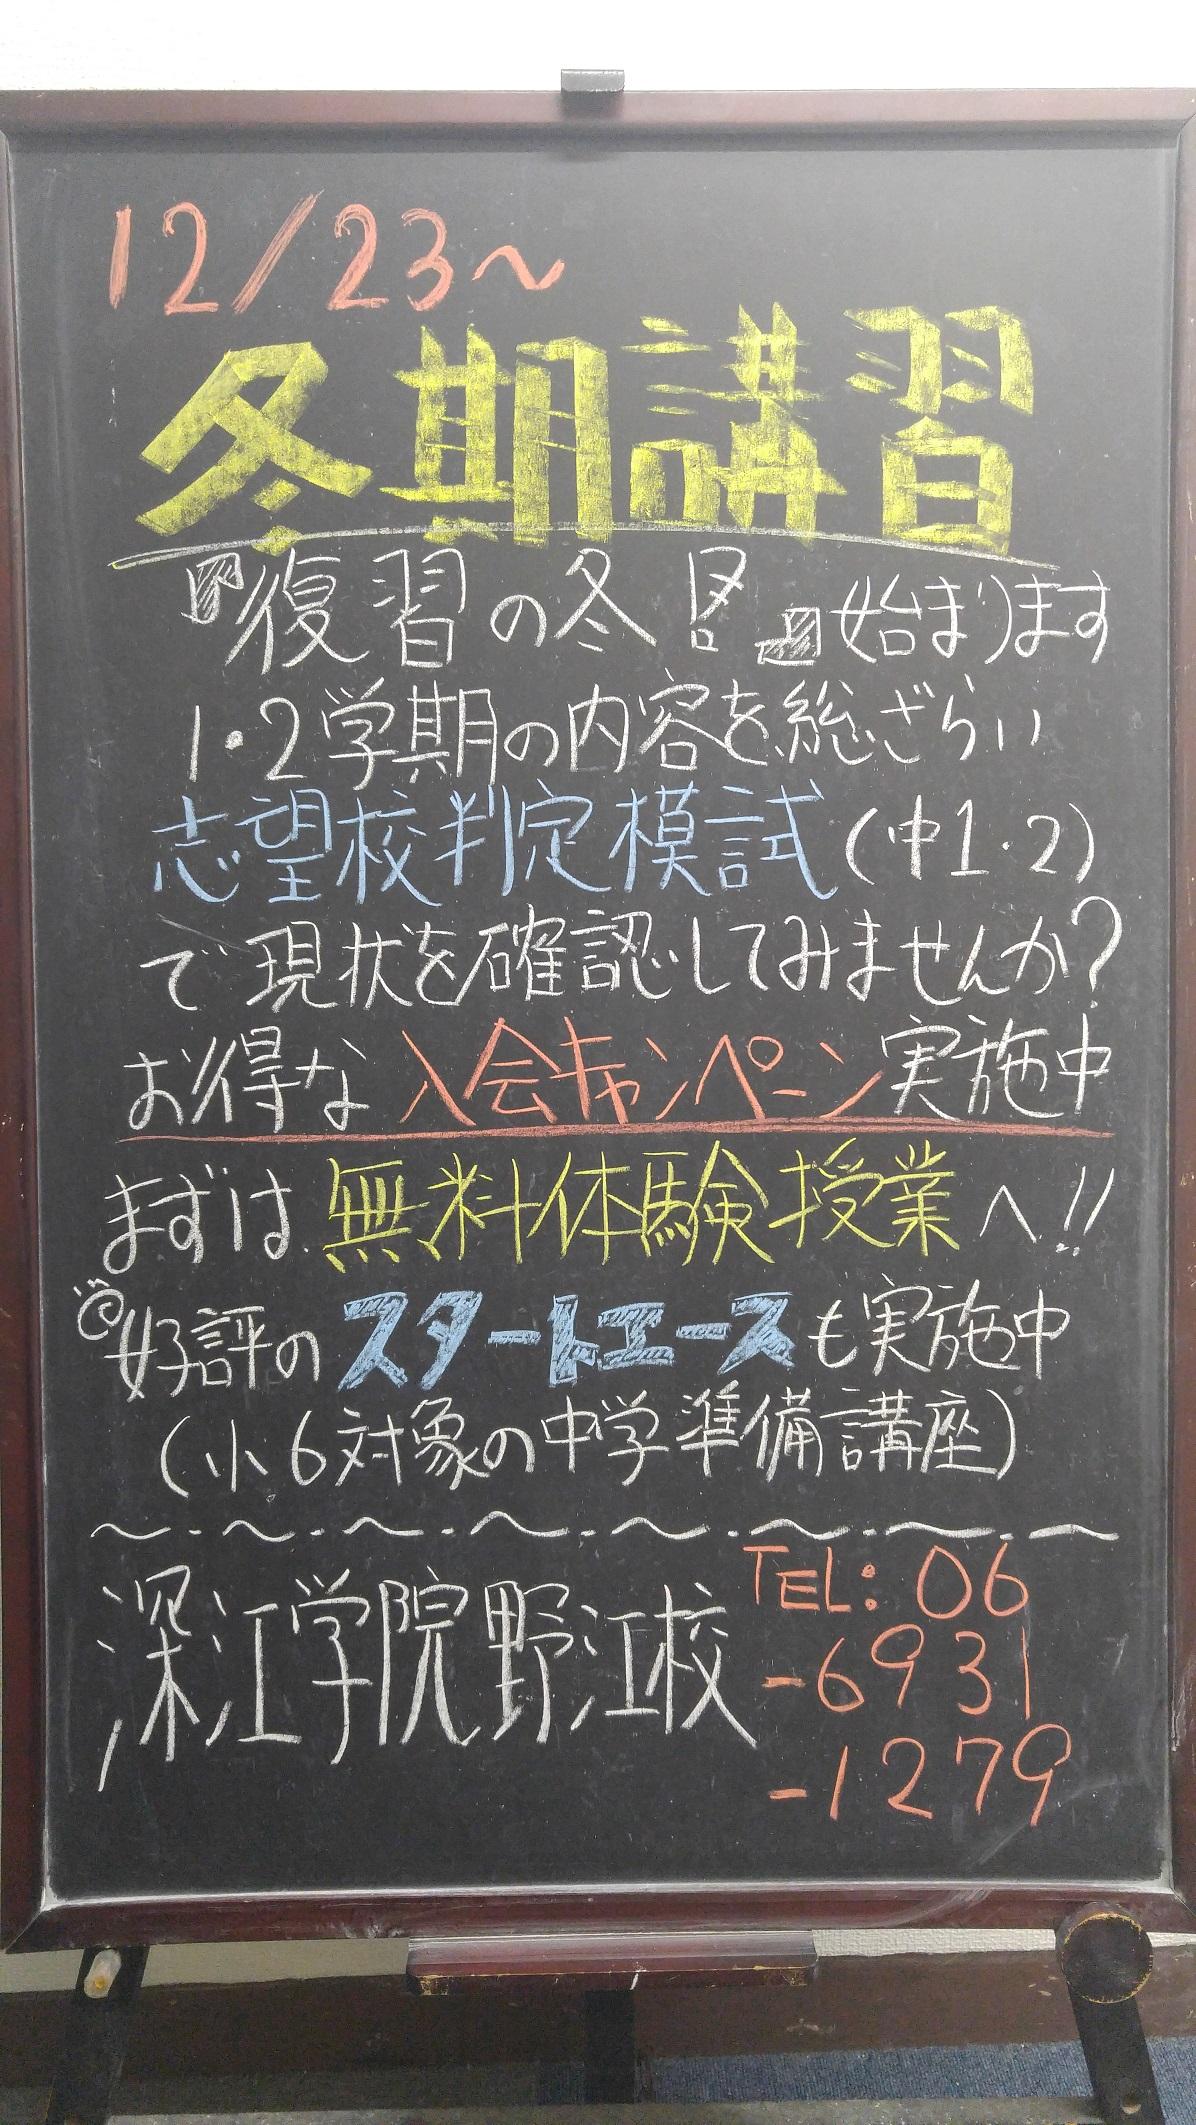 12/23〜
冬期講習
『復習の冬』始まります
1・2学期の内容を総ざらい
志望校判定模試(中1・2)
で現状を確認してみませんか?
お得な入会キャンペーン実施中
まずは無料体験授業へ!!
好評のスタートエースも実施中
(小6対象の中学準備講座)
深江学院野江校
TEL:06
-6931
-1279